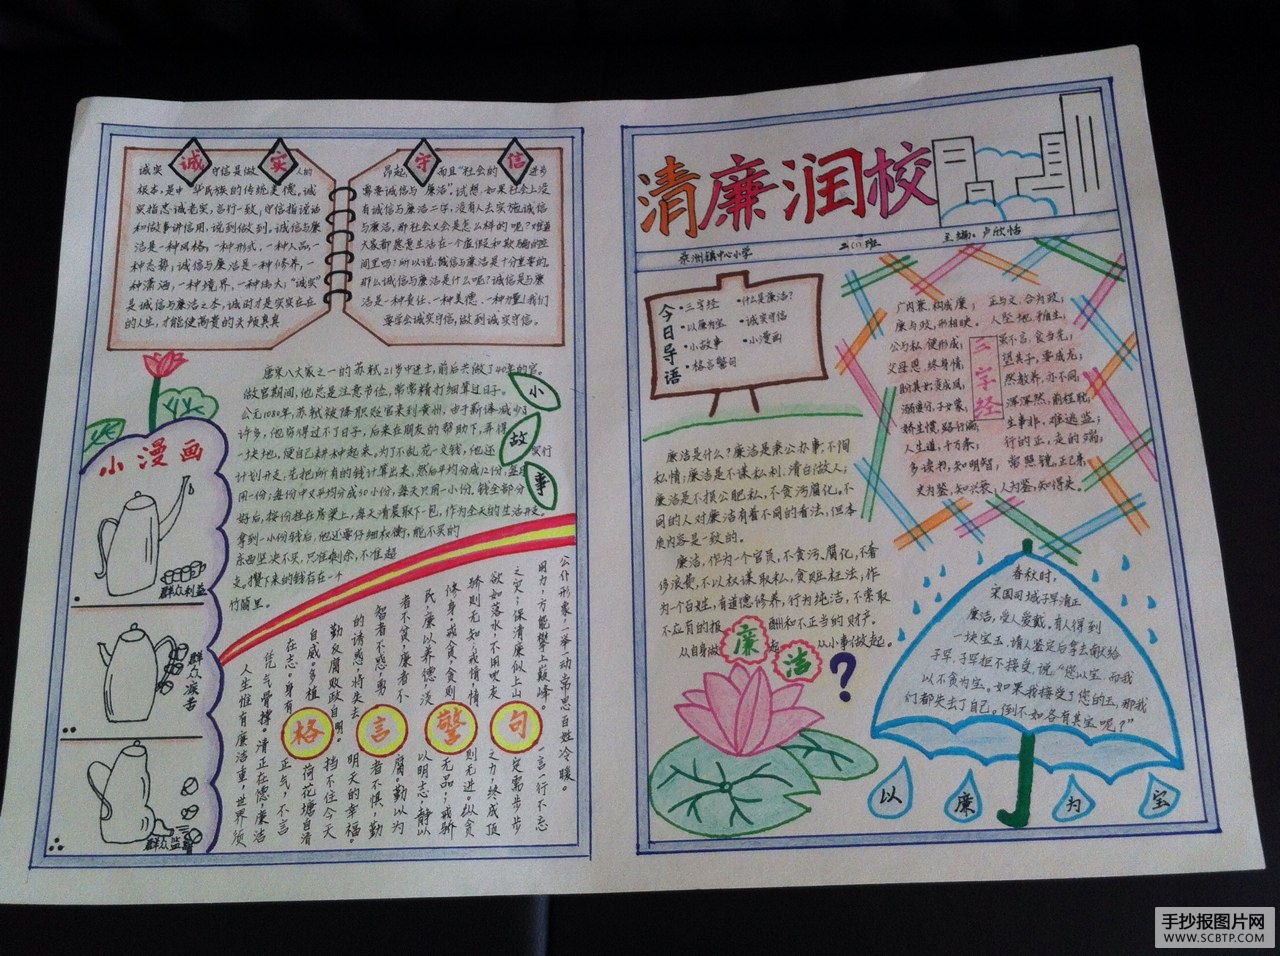 清廉润校
泉洲镇中心小学
主编:卢欣怡
今日导语
•三字经 •什么是廉洁?
•以廉为宝 •诚实守信
•小故事 •小漫画
•格言警句
三字经
父母恩,终身情,
人生道,千万条,
多读书,知明智;
史为鉴,知兴衰,人为鉴,知得失。
廉洁是什么?廉洁是秉公办事,不徇
私情;廉洁是不谋私利,清白做人;
廉洁是不损公肥私,不贪污腐化。不
同的人对廉洁有着不同的看法,但本
质内容是一致的。
廉洁,作为一个官员,不贪污、腐化,不奢
侈浪费,不以权谋取私,贪赃枉法;作
为一个百姓,有道德修养,行为纯洁,不索取
不应有的报酬和不正当的财产。
从自身做起 从小事做起。
廉洁?
春秋时,
宋国司城子罕清正
廉洁,受人爱戴。有人得到
一块宝玉,请人鉴定后拿去献给
子罕,子罕拒不接受,说:“您以宝 而我
以不贪为宝。如果我接受了您的玉,那我
们都失去了自己。倒不如各有其宝呢?”
以廉为宝
诚实守信
诚实 守信是做人的
根本,是中华民族的传统美德,诚
实指忠诚老实,言行一致;守信指说话
和做事讲信用,说到做到。诚信与廉
洁是一种风格,一种形式,一种人品,一
种态势;诚信与廉洁是一种修养,一
种潇洒,一种境界,一种伟大;“诚实”
是诚信与廉洁之本,诚的才是实实在在
的人生,才能使高贵的头颅真真
昂起 而且“社会的 进步
需要诚信与廉洁”。试想:如果社会上没
有诚信与廉洁二字,没有人去实施诚信
与廉洁,那社会又会是怎么样的呢?难道
大家都愿意生活在一个虚假和欺骗的空
间里吗?所以说:诚信与廉洁是十分重要的。
那么诚信与廉洁是什么呢?诚信是与廉
洁是一种责任,一种美德,一种力量!我们
要学会诚实守信,做到诚实守信。
小故事
唐宋八大家之一的苏轼,21岁中进士,前后共做了40年的官。
做官期间,他总是注意节俭,常常精打细算过日子。
公元1080年,苏轼被降职贬官来到黄州,由于薪俸减少了
许多,他穷得过不了日子,后来在朋友的帮助下,弄得
一块地,便自己耕种起来,为了不乱花一文钱,他还实行
计划开支:先把所有的钱计算出来,然后平均分成12份,每月
用一份;每份中又平均分成30小份,每天只用一小份。钱全部分
好后,按份挂在房梁上,每天清晨取下一包,作为全天的生活开支。
拿到一小份钱后,他还要仔细权衡,能不买的
东西坚决不买,只准剩余,不准超
支。攒下来的钱存在一个
竹筒里。
小漫画
群众利益
群众疾苦
群众监督
格言警句
公仆形象一举一动常思百姓冷暖。
用力,方能攀上巅峰。 一言一行不忘
之灾;保清廉似上山 一定需步步
欲如落水,不用吹灰 之力,终成顶
骄则无知;戒惰,惰 则无进。纵贪
修身。戒贪,贪则 无品;戒骄
民,廉以养德 以明志,静以
者不贪,廉者不 腐。勤以为
智者不惑,勇 者不惧;勤
的诱惑,将失去 明天的幸福。
勤政廉政自明。 挡不住今天
自威。多植 荷花塘自清
在志。身有 正气,不言
凭气骨撑。清正在德,廉洁
人生惟有廉洁重,世界须
手抄报图片网
WWW.SCBTP.COM